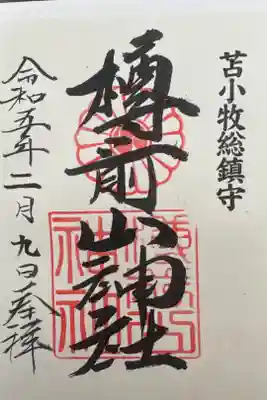 苫小牧総鎮守
樽前山神社
令和五年二月九日奉拝